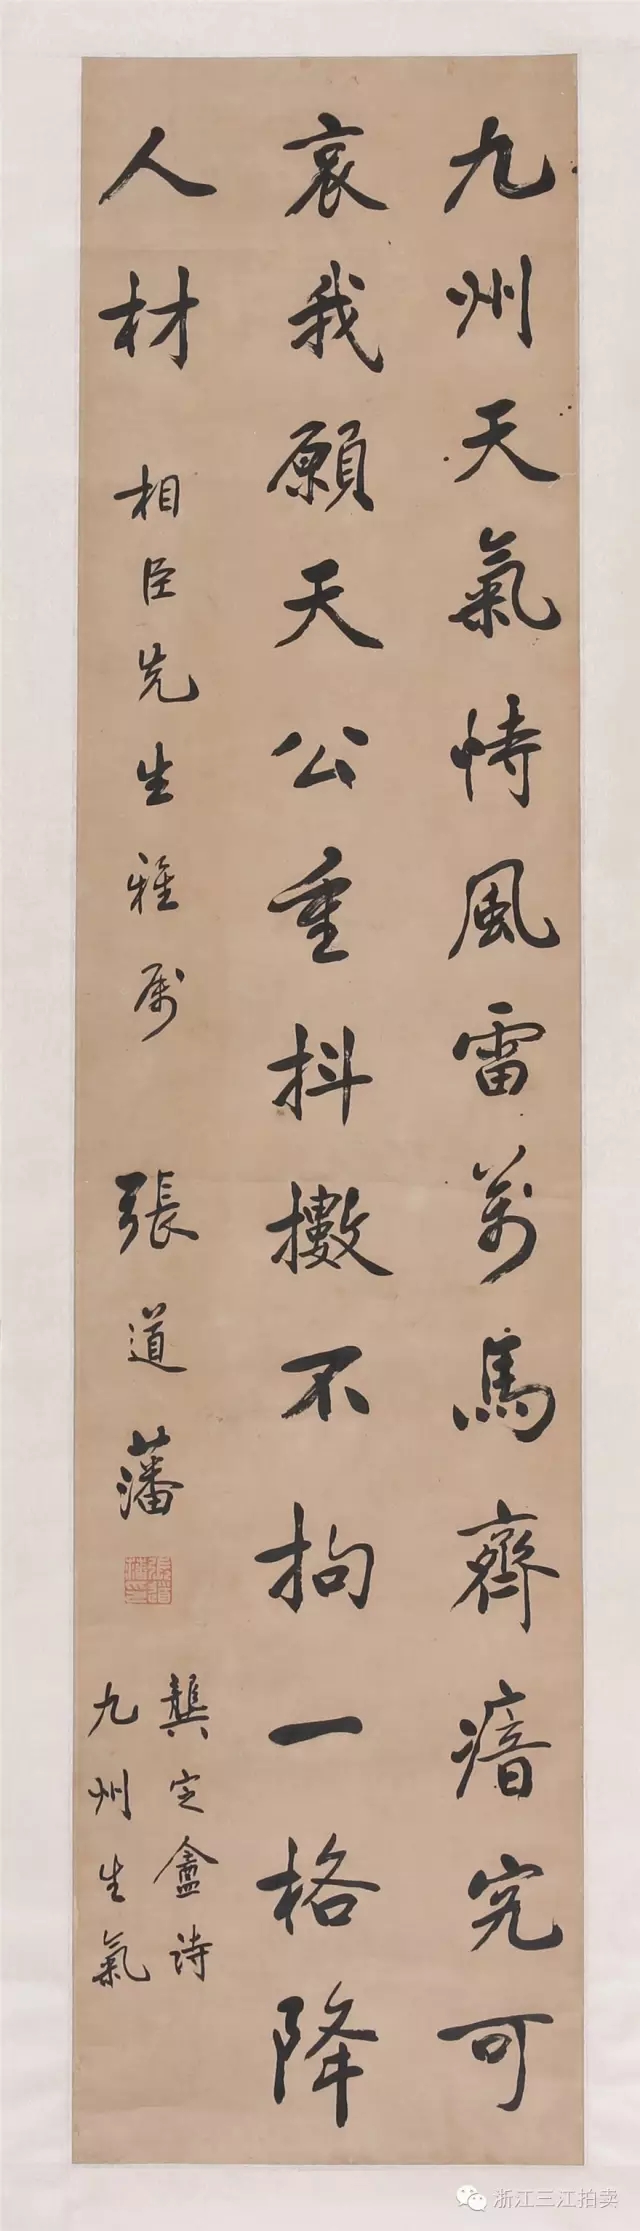 九州天氣恃風雷萬馬齊瘖究可
哀我願天公重抖擻不拘一格降
人材
相臣先生雅屬
張道藩
龔定盦詩
九州生氣
浙江三江拍卖